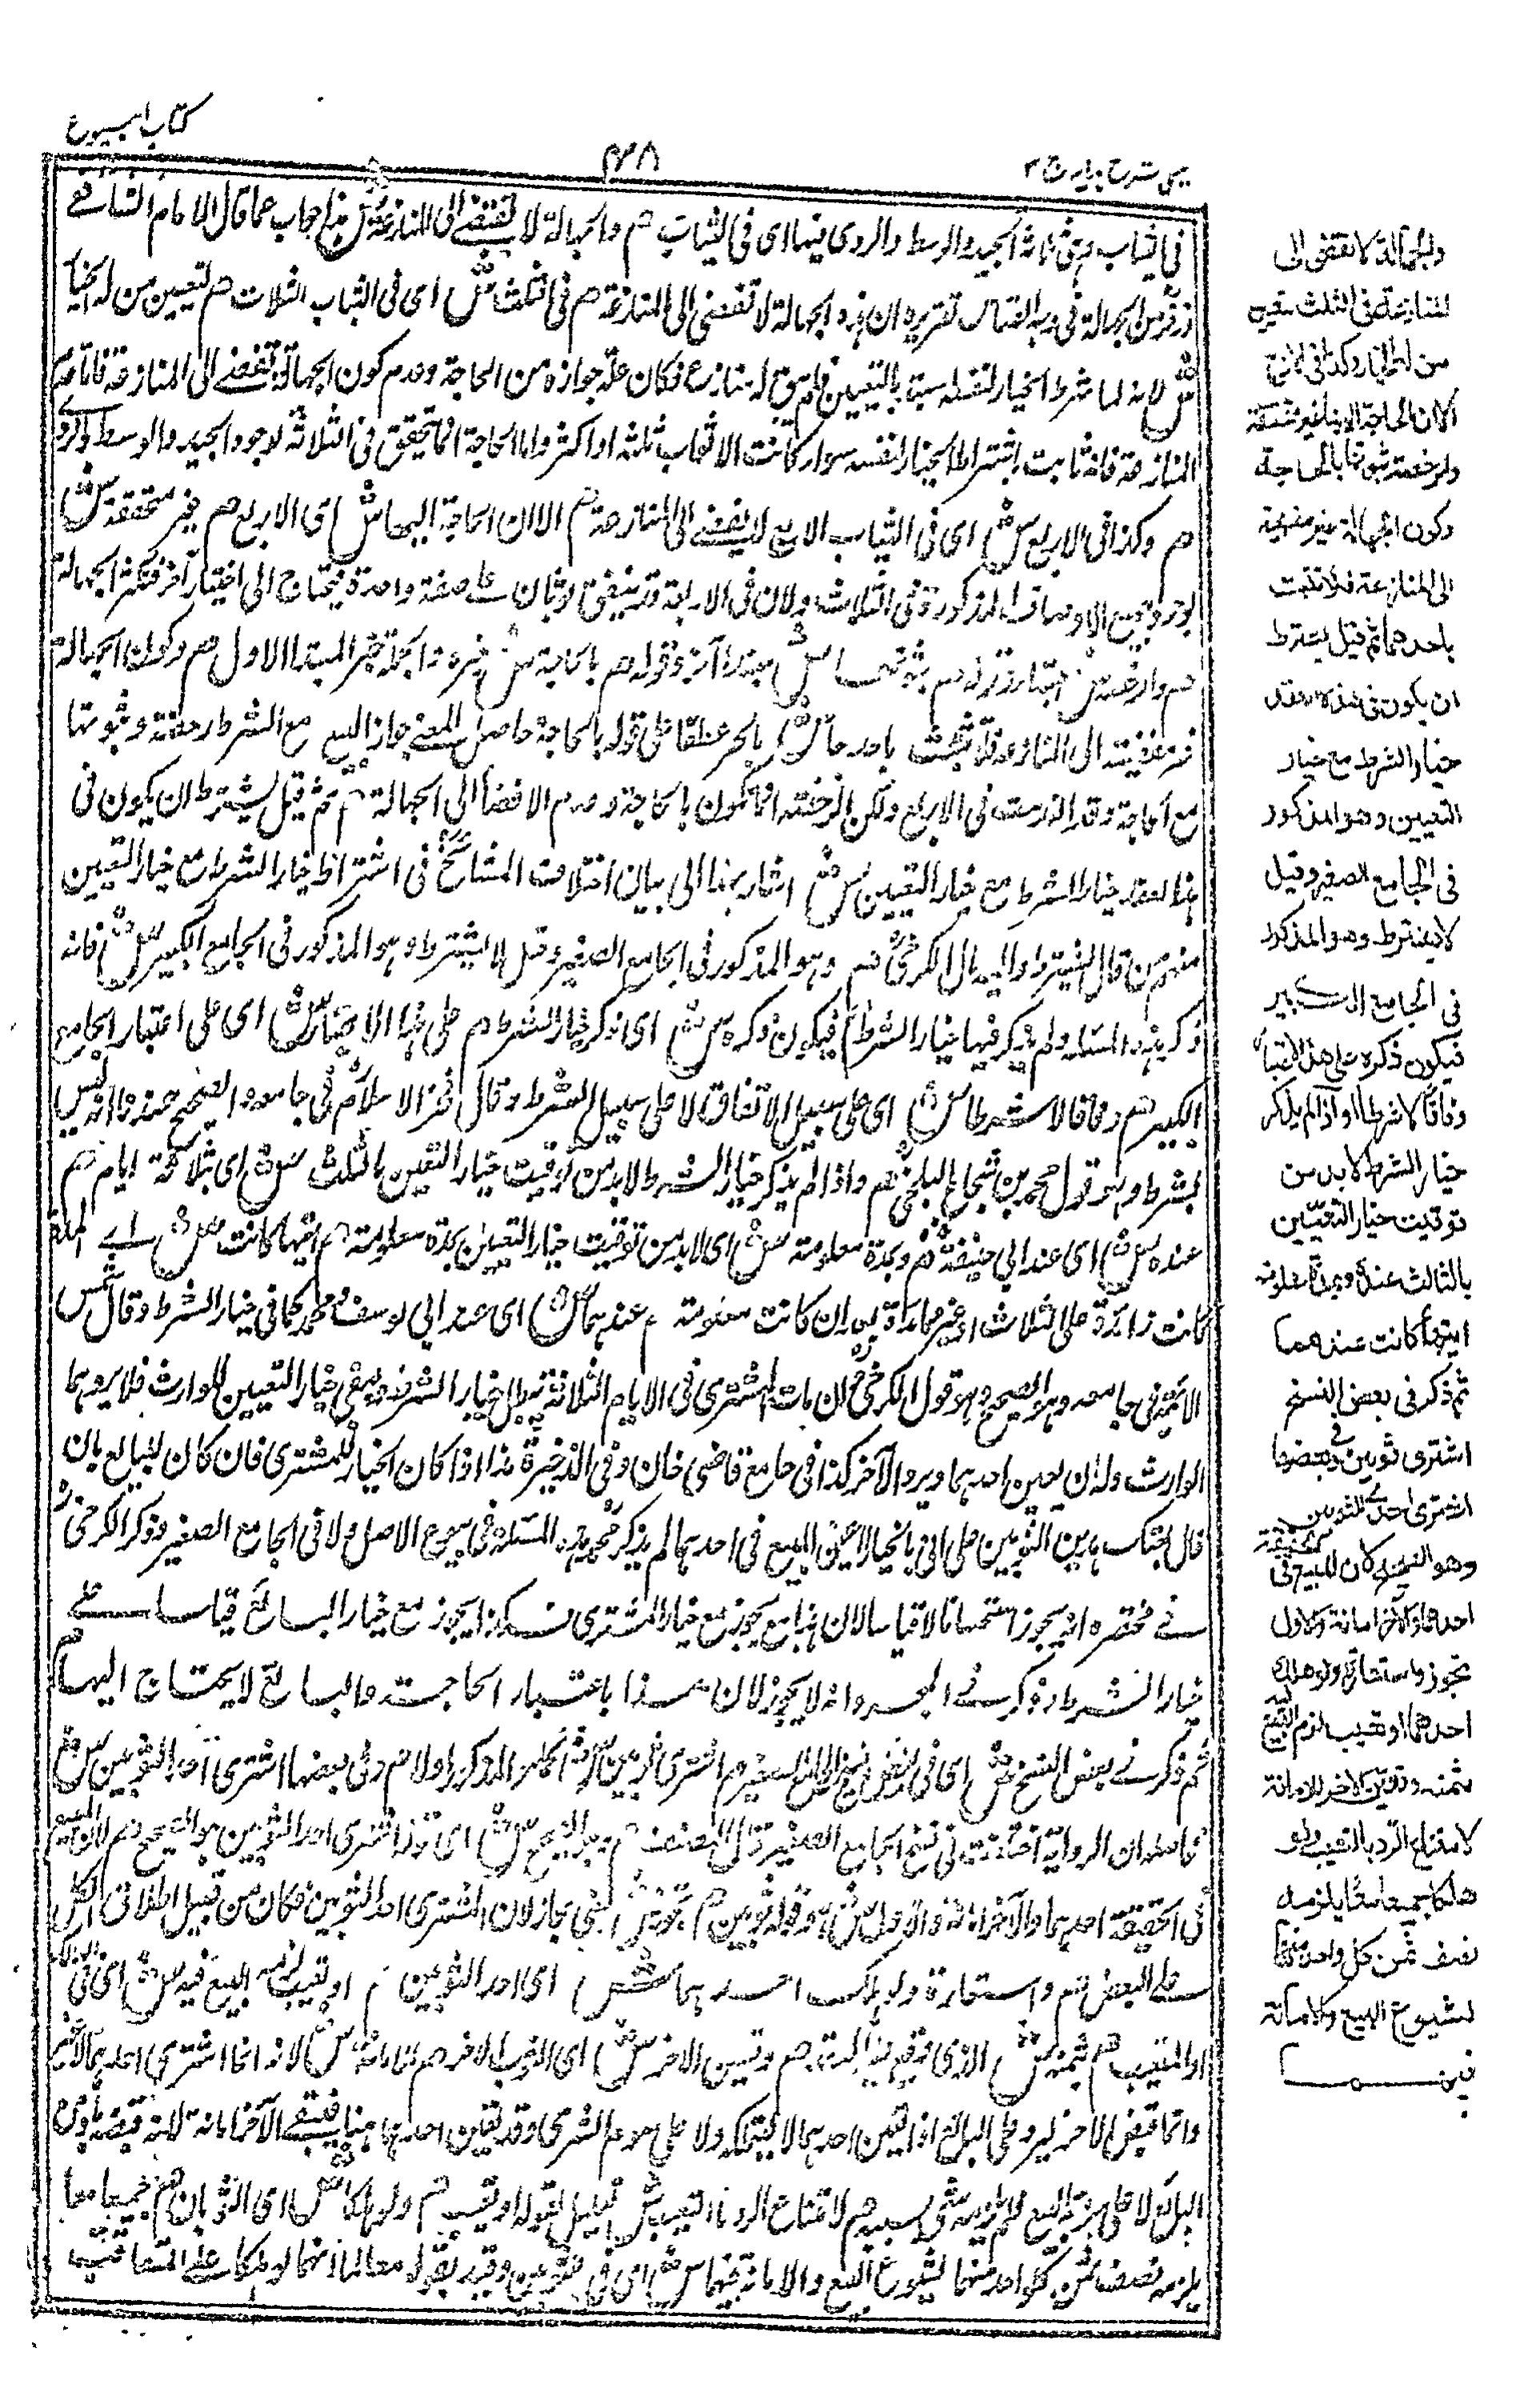 كتاب البيوع
٣٨
عيني شرح هدايه ج ٣
في الثياب هي ثلاثة الجيد والوسط والردي فيها اي في الثياب م والجهالة لا تفضي الى المنازعة ش هذا جواب عما قال الامام الشافعي
وزفر من الجهالة في وجه القياس تقريره ان هذه الجهالة لا تفضي الى المنازعة م في الثلث ش اى في الثياب الثلاث م لتعيين من له الخيار
ش لانه لما شرط الخيار لنفسه يستبد بالتعيين فلم يبق له منازع فكان علة جوازه من الحاجة وعدم كون الجهالة تفضي الى المنازعة فاما عدم
المنازعة فانه ثابت باشتراط الخيار لنفسه سواء كانت الاثواب ثلثة او اكثر واما الحاجة انما تتحقق في الثلاثة لوجود الجيد والوسط والردي
م وكذا في الاربع ش اى في الثياب الاربع لا يفضي الى المنازعة م الا ان الحاجة اليها ش اى الاربع م غير متحققة ش
لوجود جميع الاوصاف المذكورة في الثلاث ولان في الاربعة قد يتفق ثوبان على صفة واحدة فيحتاج الى اختيار آخر فتكثر الجهالة
م والرخصة ش مبتدا وقوله م ثبوتها ش مبتدا آخر وقوله م بالحاجة ش خبره والجملة خبر المبتدا الاول م وكون الجهالة
غير مفضية الى المنازعة فلا تثبت باحدهما ش بالجر عطفا على قوله بالحاجة حاصل المعنى جواز البيع مع الشرط رخصة وثبوتها
مع الحاجة وقد انعدمت في الاربع ولكن الرخصة انما تكون بالحاجة وعدم الافضاء الى الجهالة م ثم قيل يشترط ان يكون في
هذا العقد خيار الشرط مع خيار التعيين ش اشار بهذا الى بيان اختلاف المشايخ في اشتراط خيار الشرط مع خيار التعيين
منهم من قال يشترط واليه مال الكرخي م وهو المذكور في الجامع الصغير وقيل لا يشترط وهو المذكور في الجامع الكبير ش فانه
ذكر هذه المسئلة ولم يذكر فيها خيار الشرط م فيكون ذكره ش اى ذكر خيار الشرط م على هذا الاعتبار ش اى على اعتبار الجامع
الكبير م وفاقا لا شرطا ش اى على سبيل الاتفاق لا على سبيل الشرط وقال فخر الاسلام في جامعه والصحيح عندنا انه ليس
بشرط وهو قول محمد بن شجاع البلخي م واذا لم يذكر خيار الشرط لا بد من توقيت خيار التعيين بالثلث ش اى بثلاثة ايام م
عنده ش اى عند ابي حنيفة م وبمدة معلومة ش اى لا بد من توقيت خيار التعيين بمدة معلومة م ايتها كانت ش اے المدة
كانت زائدة على الثلاث او غير زائدة بعد ان كانت معلومة م عندهما ش اى عند ابي يوسف ومحمد كما في خيار الشرط وقال شمس
الائمة في جامعه وهو الصحيح وهو قول الكرخي ان مات المشتري في الايام الثلاثة يبطل خيار الشرط ويبقى خيار التعيين للوارث فلا يردهما
الوارث وله ان يعين احدهما ويرد الآخر كذا في جامع قاضي خان وفي الذخيرة هذا اذا كان الخيار للمشتري فان كان للبائع بان
قال بعتك هذين الثوبين على اني بالخيار لاعين البيع في احدهما لم يذكر محمد هذه المسئلة في بيوع الاصل ولا في الجامع الصغير وذكر الكرخي
في مختصره انه يجوز استحسانا لا قياسا لان هذا بيع يجوز مع خيار المشتري فكذا يجوز مع خيار البائع قياسا على
خيار الشرط وذكر في المجرد انه لا يجوز لان هذا باعتبار الحاجة والبائع لا يحتاج اليها م
ثم ذكر في بعض النسخ ش اى في بعض نسخ الجامع الصغير م اشترى ثوبين ش المذكور اولا م وفي بعضها اشترى احد الثوبين ش
حاصله ان الرواية اختلفت في نسخ الجامع الصغير قال المصنف م وهو الصحيح ش اى قوله اشترى احد الثوبين هو الصحيح م لان المبيع
في الحقيقة احدهما والآخر امانة والاول ش وقوله ثوبين م تجوز ش اى مجاز لان المشترى احد الثوبين فكان من قبيل اطلاق الكل
على البعض م واستعارة ولو هلك احدهما ش اى احد الثوبين م او تعيب لزمه البيع فيه ش اى في الهالك
او المتعيب م بثمنه ش الذى وقع عليه البيع م وتعين الآخر ش اى الثوب الآخر م للامانة ش لانه انما اشترى احدهما
وانما قبض الآخر ليرد على البائع اذا تعين احدهما لا ليتملكه ولا على سوم الشرى وقد تعين احدهما هنا فبقى الآخر امانة لانه قبضه باذن
البائع لا على جهة البيع فلم يلزمه شي بسببه م لامتناع الرد بالتعيب ش تعليل لقوله او تعيب م ولو هلكا ش اى الثوبان م جميعا معا
يلزمه نصف ثمن كل واحد منهما لشيوع البيع والامانة فيهما ش اى في الثوبين وقيد بقوله معا لانهما لو هلكا على التعاقب
والجهالة لا تفضى الى
المنازعة فى الثلث لتعيين
من له الخيار وكذا فى الاربع
الا ان الحاجة اليها غير متحققة
والرخصة ثبوتها بالحاجة
وكون الجهالة غير مفضية
الى المنازعة فلا تثبت
باحدهما ثم قيل يشترط
ان يكون فى هذا العقد
خيار الشرط مع خيار
التعيين وهو المذكور
فى الجامع الصغير وقيل
لا يشترط وهو المذكور
فى الجامع الكبير
فيكون ذكره على هذا الاعتبار
وفاقا لا شرطا واذا لم يذكر
خيار الشرط لا بد من
توقيت خيار التعيين
بالثالث عنده وبمدة معلومة
ايتها كانت عندهما
ثم ذكر فى بعض النسخ
اشترى ثوبين وفى بعضها
اشترى احد الثوبين
وهو الصحيح لان المبيع فى الحقيقة
احدهما والآخر امانة والاول
تجوز واستعارة ولو هلك
احدهما او تعيب لزم البيع فيه
بثمنه وتعين الآخر للامانة
لامتناع الرد بالتعيب ولو
هلكا جميعا معا يلزمه
نصف ثمن كل واحد منهما
لشيوع البيع والامانة
فيهما